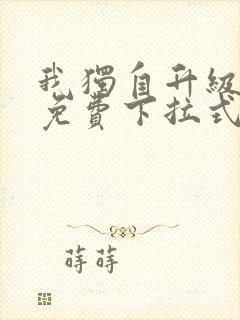 我獨自升級
免費下拉式
蒔蒔